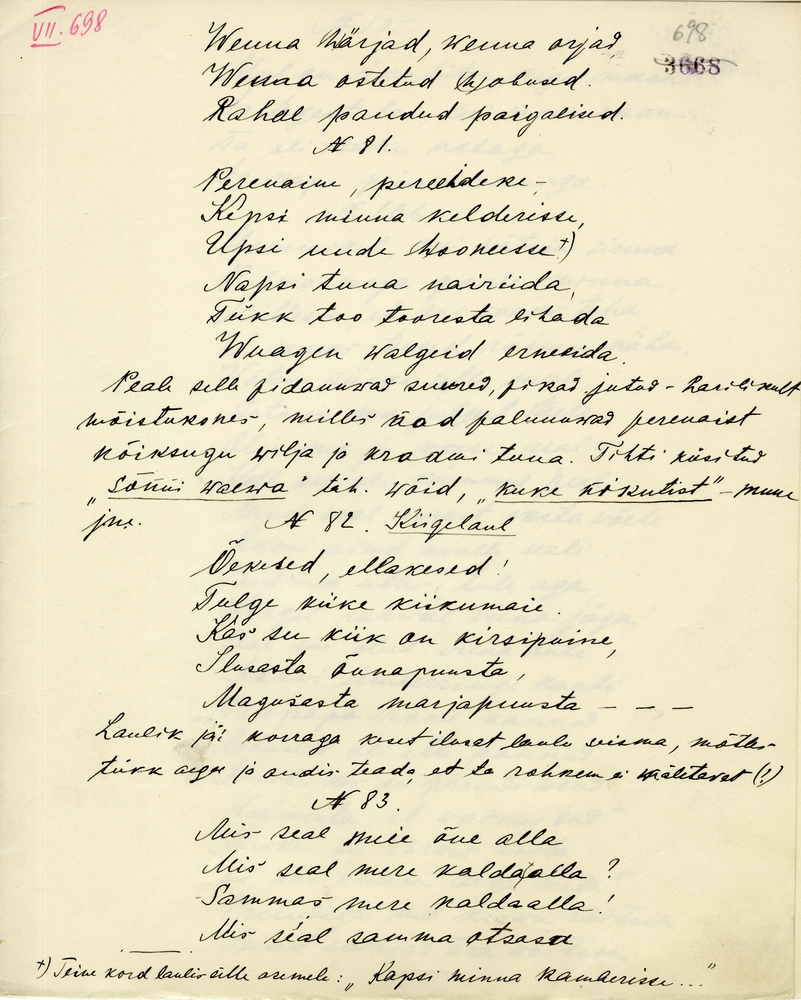 VII. 698
698
3668
Wenna härjad, wenna orjad,
Wennaa ostetud (h)obused.
Rahal pandud paigalised.
№ 81.
Perenaine, pereeideke,
Kepsi minna kelderisse,
Upsi uude hooneesse †)
Napsi tuua nairiida,
Tükk too tooresta lihada
Waagen walgeid ernesida.
Peale selle pidanuwad suured, pikad jutud - harilikult
mõistukones, milles nad palunuwad perenaist
kõiksugu wilja ja kraami tuua. Tihti küsitud
"Sõnni waewa" täh. wõid, "kuke kikutist" - mune
jne.
№ 82. Kiigelaul
Õekesed, ellakesed!
Tulge kiike kiikumaie.
Kas su kiik on kirsipuine,
Ilusasta õunapuusta,
Magusasta marjapuusta - - -
Laulik jäi korraga keset ilusat laulu seisma, mõtles
tükk aega ja andis teada, et ta rohkem ei mäletawat (!)
№ 83.
Mis seal meie õue alla
Mis seal mere kaldaalla?
Sammas mere kaldaalla!
Mis seal samma otsasa
†) Teine kord laulis selle asemele: "Kapsi minna kamberisse..."